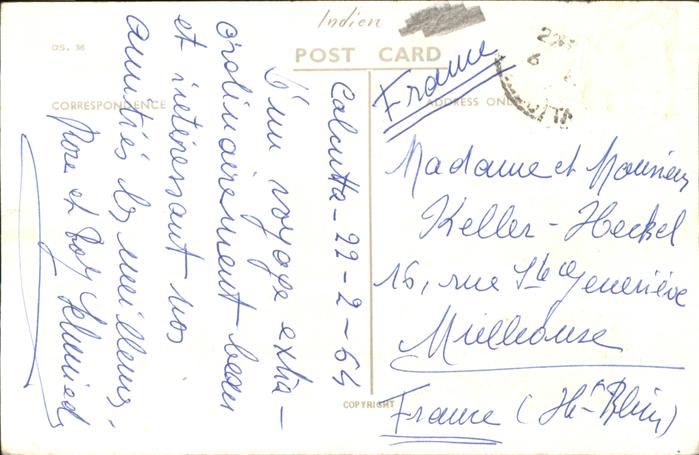 Indien
OS. 36
POST CARD
CORRESPONDENCE
ADDRESS ONLY
Calcutta - 22-2-64
D'un voyage extra-
ordinairement beau
et intéressant nos
amitiés les meilleures.
Rose et Schmied
France
Madame et Monsieur
Keller-Heckel
16, rue Ste Geneviève
Mulhouse
France (Ht-Rhin)
COPYRIGHT